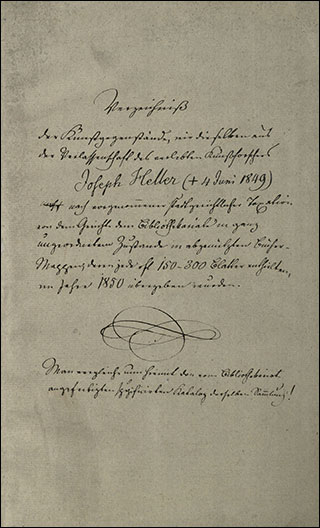 Verzeichniß
der Kunstgegenstände, wie dieselben aus
der Verlassenschaft des verlebten Kunstforschers
Joseph Heller († 4 Juni 1849)
nach vorgenommener stadtgerichtlicher Taxation
von dem Gerichte dem Bibliothekariat in ganz
ungeordnetem Zustande in abgenützten Bücher-
Mappen, deren jede oft 150-300 Blätter enthielten,
im Jahre 1850 übergeben wurden.
Man vergleiche nun hiemit den vom Bibliothekariat
angefertigten spezificirten Katalog derselben Sammlung!